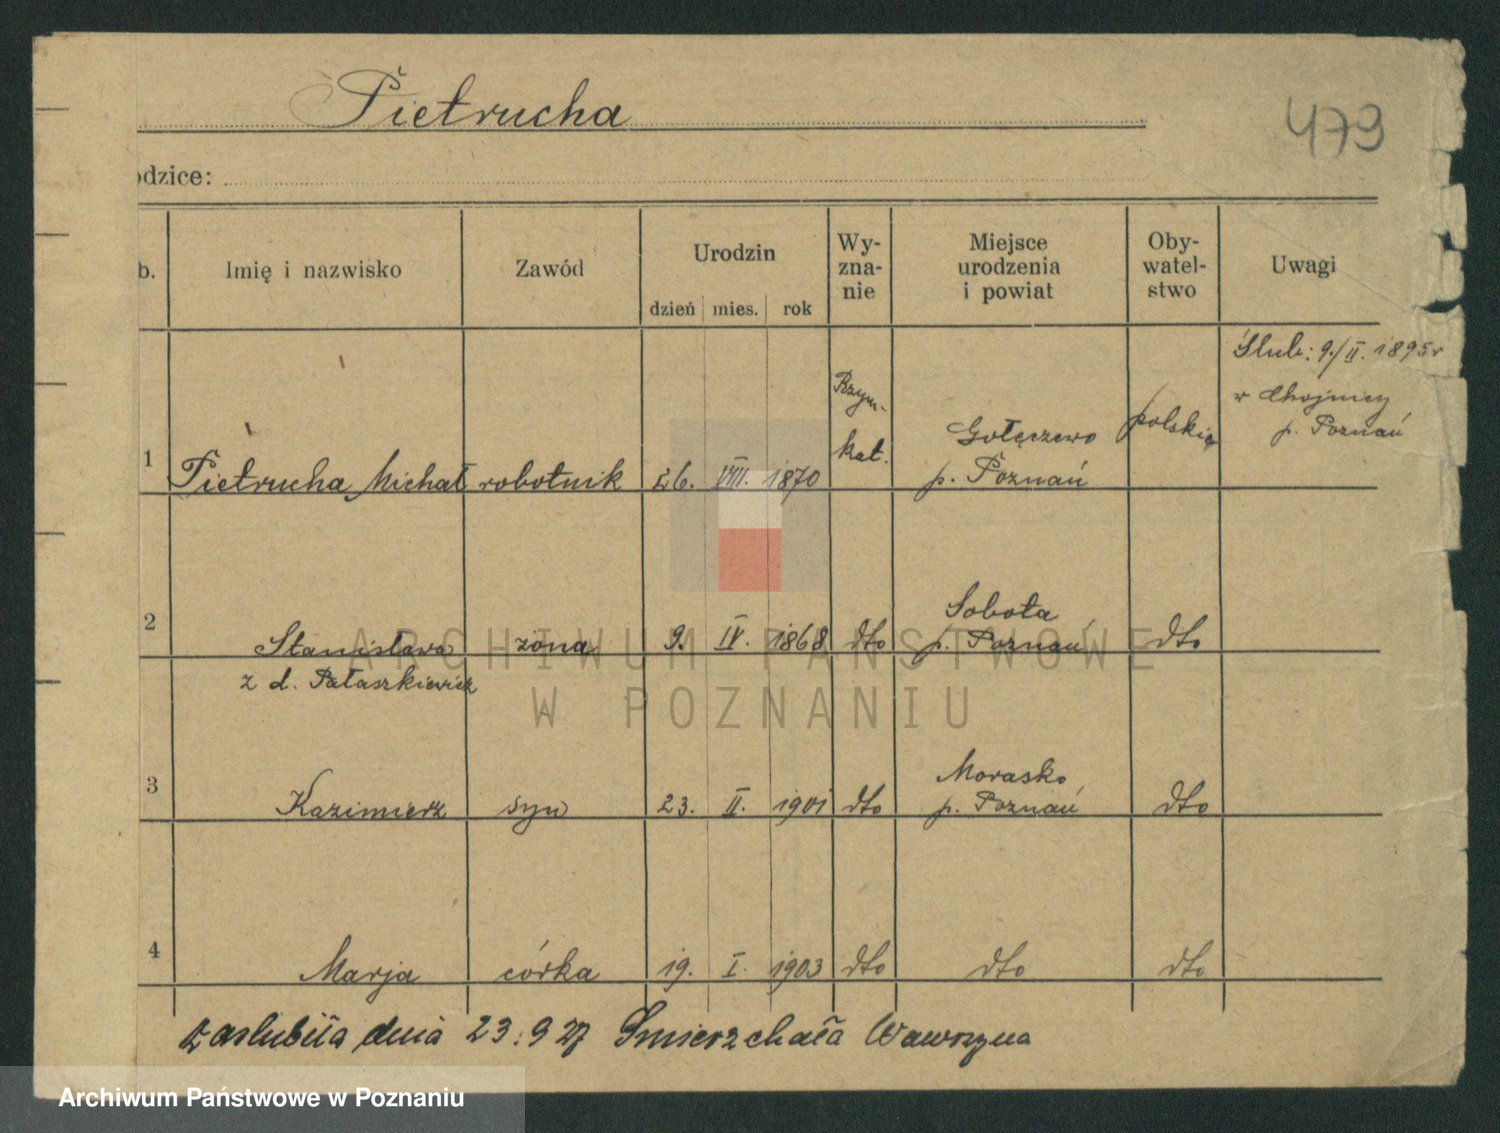 Pietrucha
479
odzice:
b. Imię i nazwisko Zawód Urodzin dzień mies. rok Wy-zna-nie Miejsce urodzenia i powiat Oby-watel-stwo Uwagi
Ślub: 9./II. 1895 r
w Chojnicy
p. Poznań
1 Pietrucha Michał robotnik 26. VIII. 1870 Rzym.-kat. Gołęczewo p. Poznań polskie
2 Stanisława żona 9. IV. 1868 dto Sobota p. Poznań dto
z d. Pałaszkiewicz
3 Kazimierz syn 23. II. 1901 dto Morasko p. Poznań dto
4 Marja córka 19. I. 1903 dto dto dto
zaslubiła dnia 23.9 27 Smierzchała Wawrzyna
ARCHIWUM PAŃSTWOWE
W POZNANIU
Archiwum Państwowe w Poznaniu